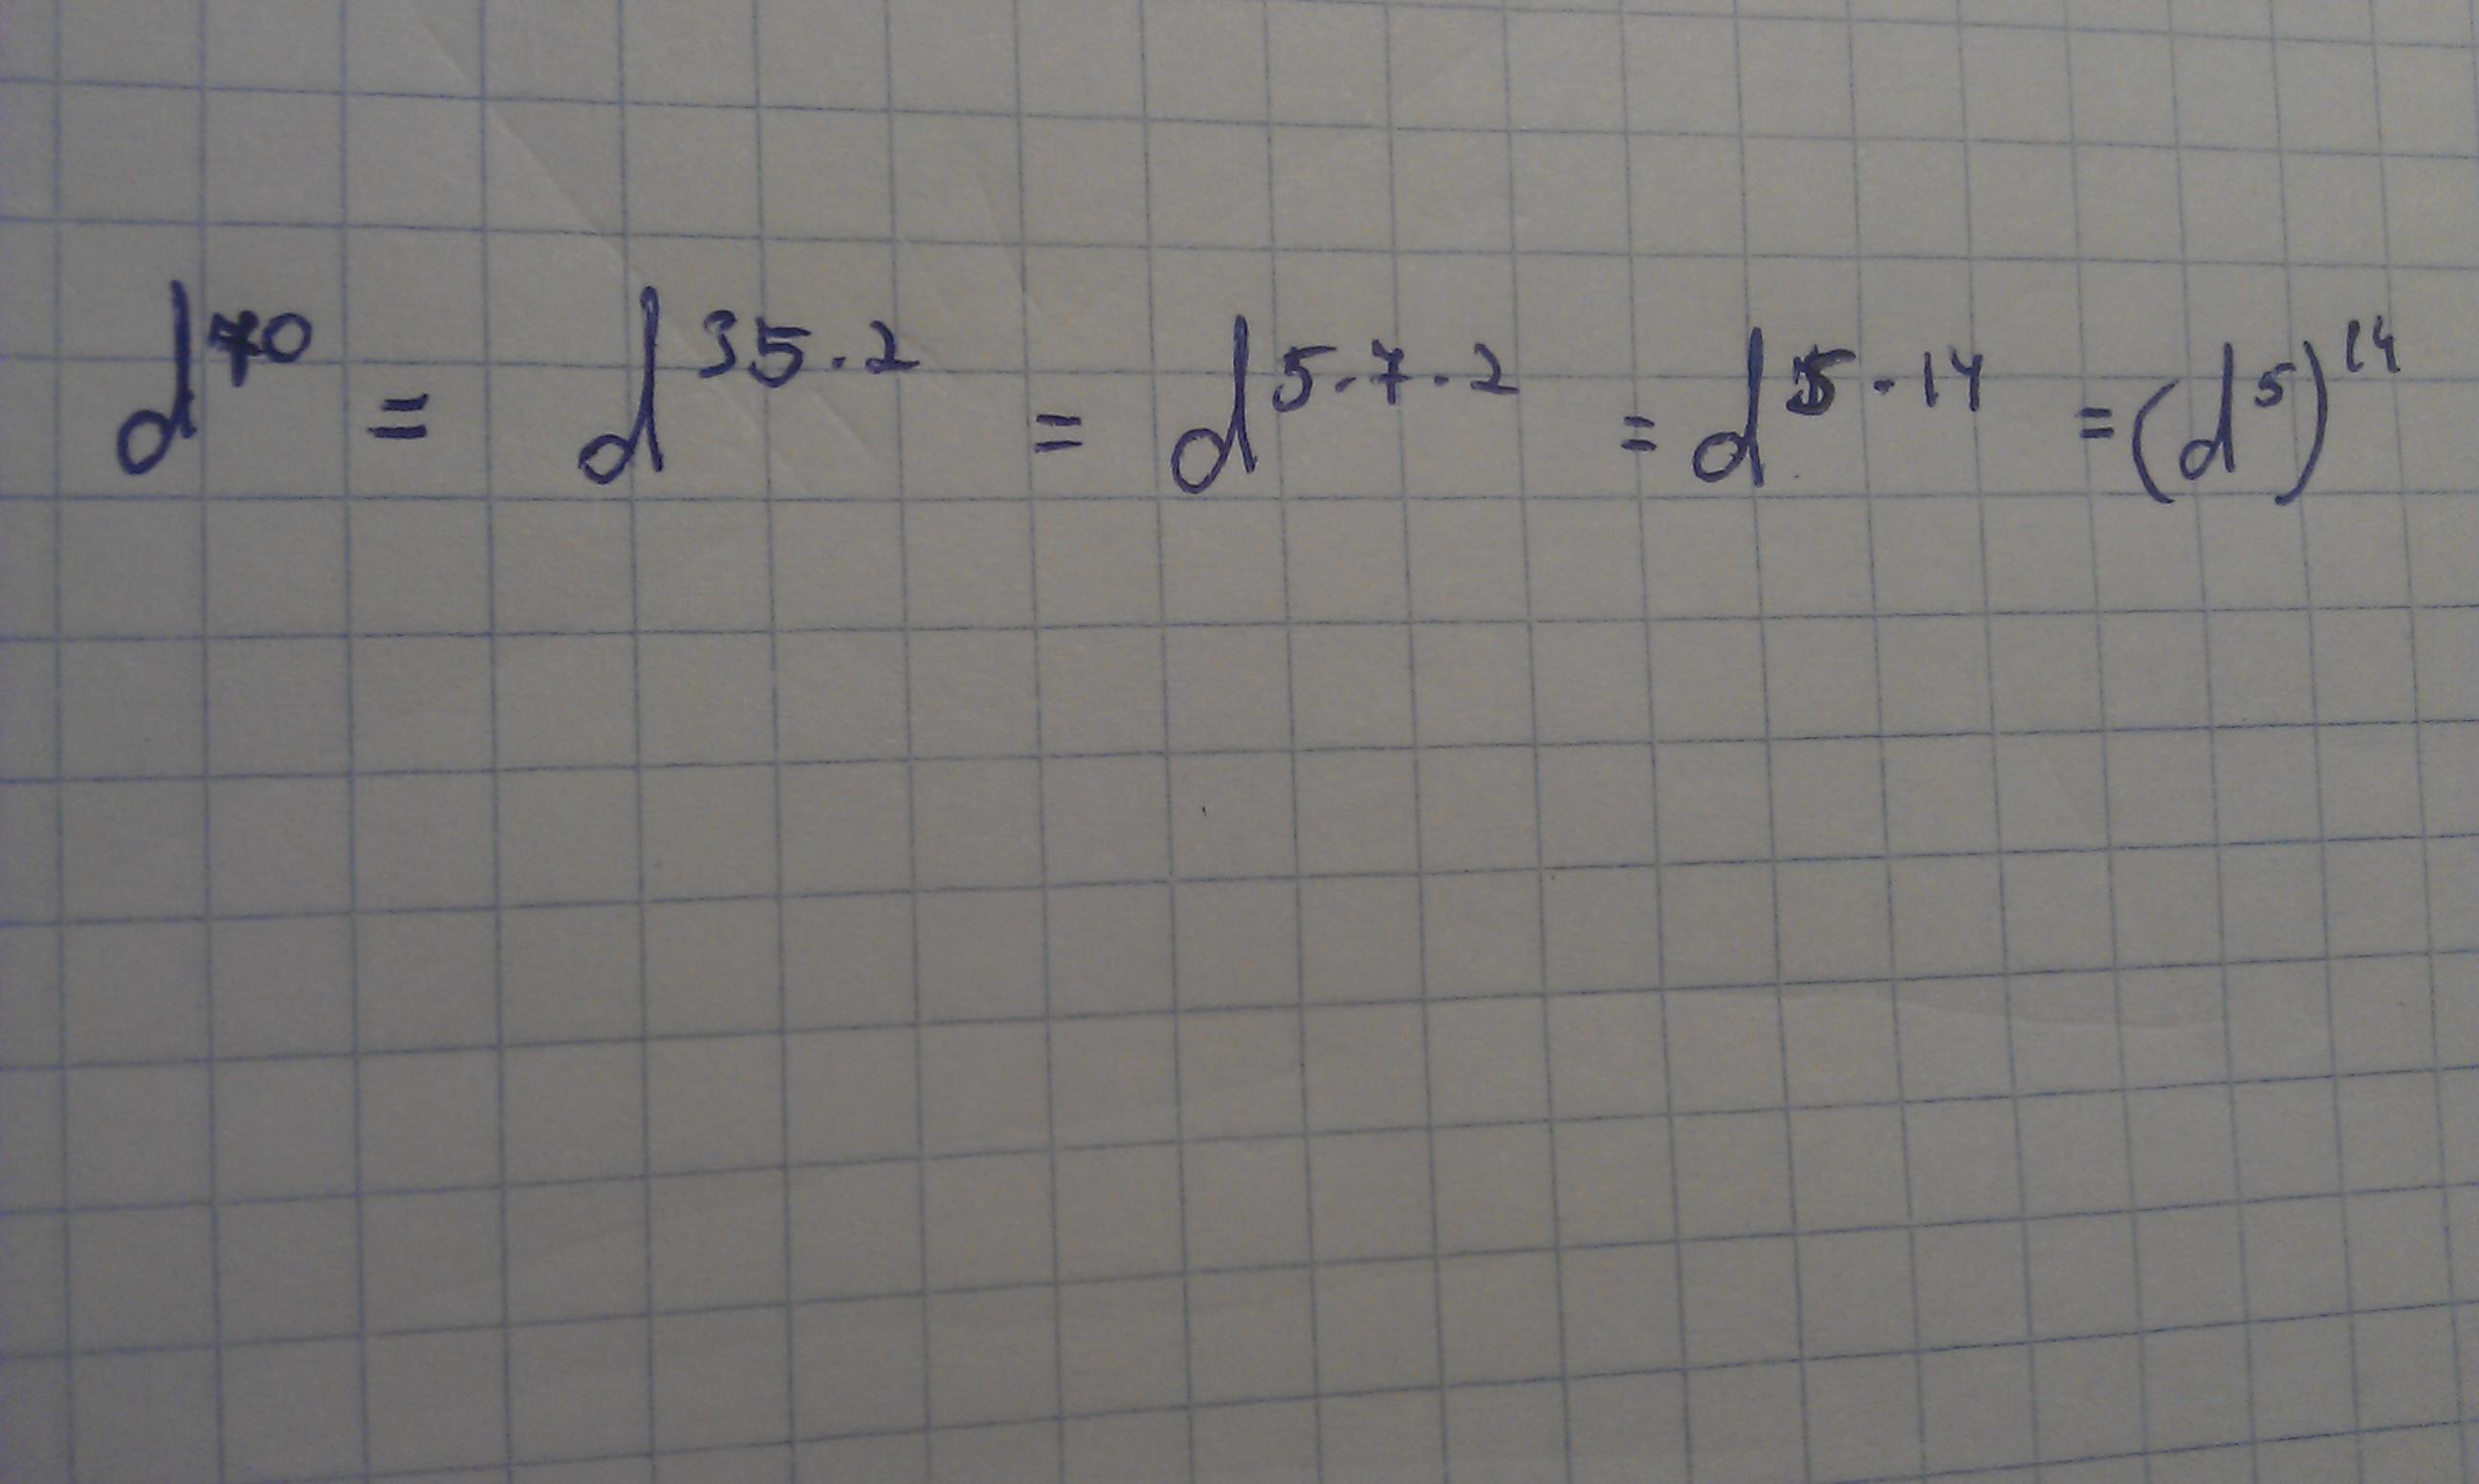 d⁷⁰ = d³⁵·² = d⁵·⁷·² = d⁵·¹⁴ = (d⁵)¹⁴